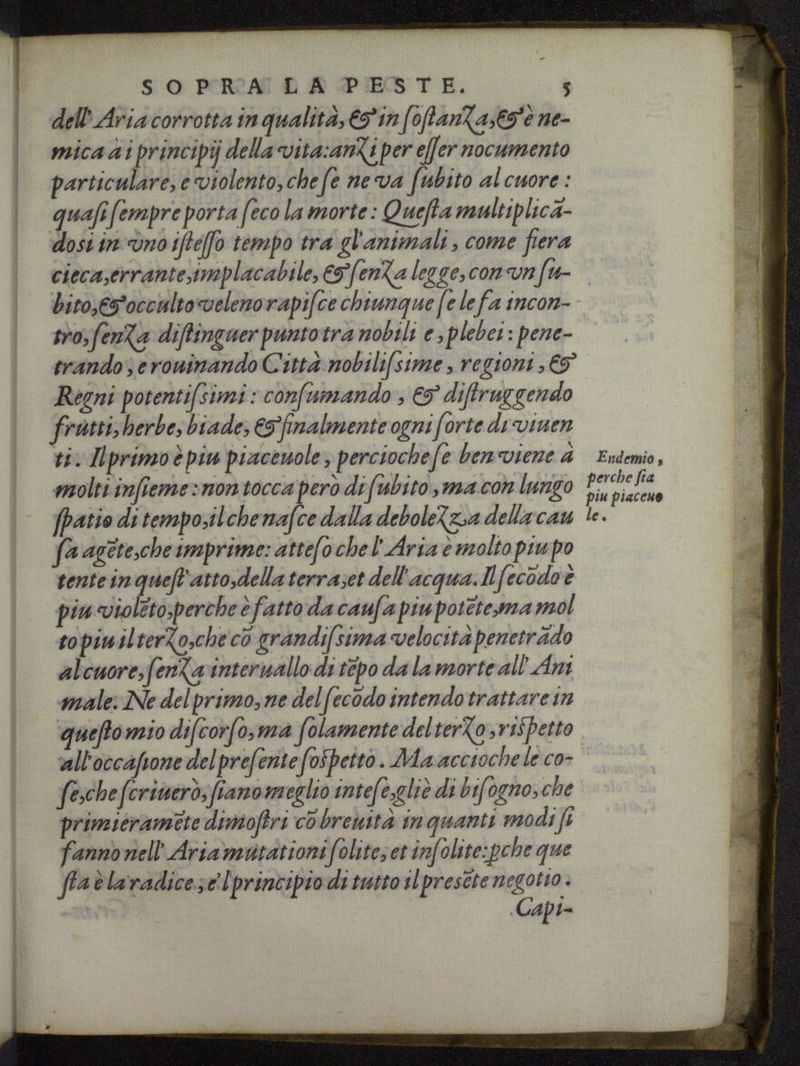 SOPRA LA PESTE. 5
dell'Aria corrotta in qualità, & in ſoſtanza, & è ne-
mica à i principij della vita: anzi per eſſer nocumento
particulare, e violento, che ſe ne va ſubito al cuore :
quaſi ſempre porta ſeco la morte : Queſta multiplicã-
dosi in vno iſteſſo tempo tra gl'animali, come fiera
cieca, errante, implacabile, & ſenza legge, con vn ſu-
bito, & occulto veleno rapiſce chiunque ſe le fa incon-
tro, ſenza diſtinguer punto tra nobili e, plebei : pene-
trando, e rouinando Città nobiliſsime, regioni, &
Regni potentiſsimi : conſumando, & diſtruggendo
frutti, herbe, biade, & finalmente ogni ſorte di viuen
ti. Il primo è piu piaceuole, perciocheſe ben viene à
molti inſieme : non tocca però di ſubito, ma con lungo
ſpatio di tempo, il che naſce dalla debolezza della cau
ſa agẽte, che imprime: atteſo che l'Aria è molto piu po
tente in queſt'atto, della terra, et dell'acqua. Il ſecõdo è
piu violẽto, perche è fatto da cauſa piu potẽte, ma mol
to piu il terzo, che cõ grandiſsima velocità penetrãdo
al cuore, ſenza interuallo di tẽpo da la morte all'Ani
male. Ne del primo, ne del ſecõdo intendo trattare in
queſto mio diſcorſo, ma ſolamente del terzo, riſpetto
all'occaſione del preſente ſoſpetto. Ma accioche le co-
ſe, che ſcriuerò, ſiano meglio inteſe, gliè di biſogno, che
primieramẽte dimoſtri cõ breuità in quanti modi ſi
fanno nell'Aria mutationi ſolite, et inſolite: ꝑche que
ſta è la radice, e'l principio di tutto il presẽte negotio.
Capi-
Endemio,
perche ſia
piu piaceuo
le.